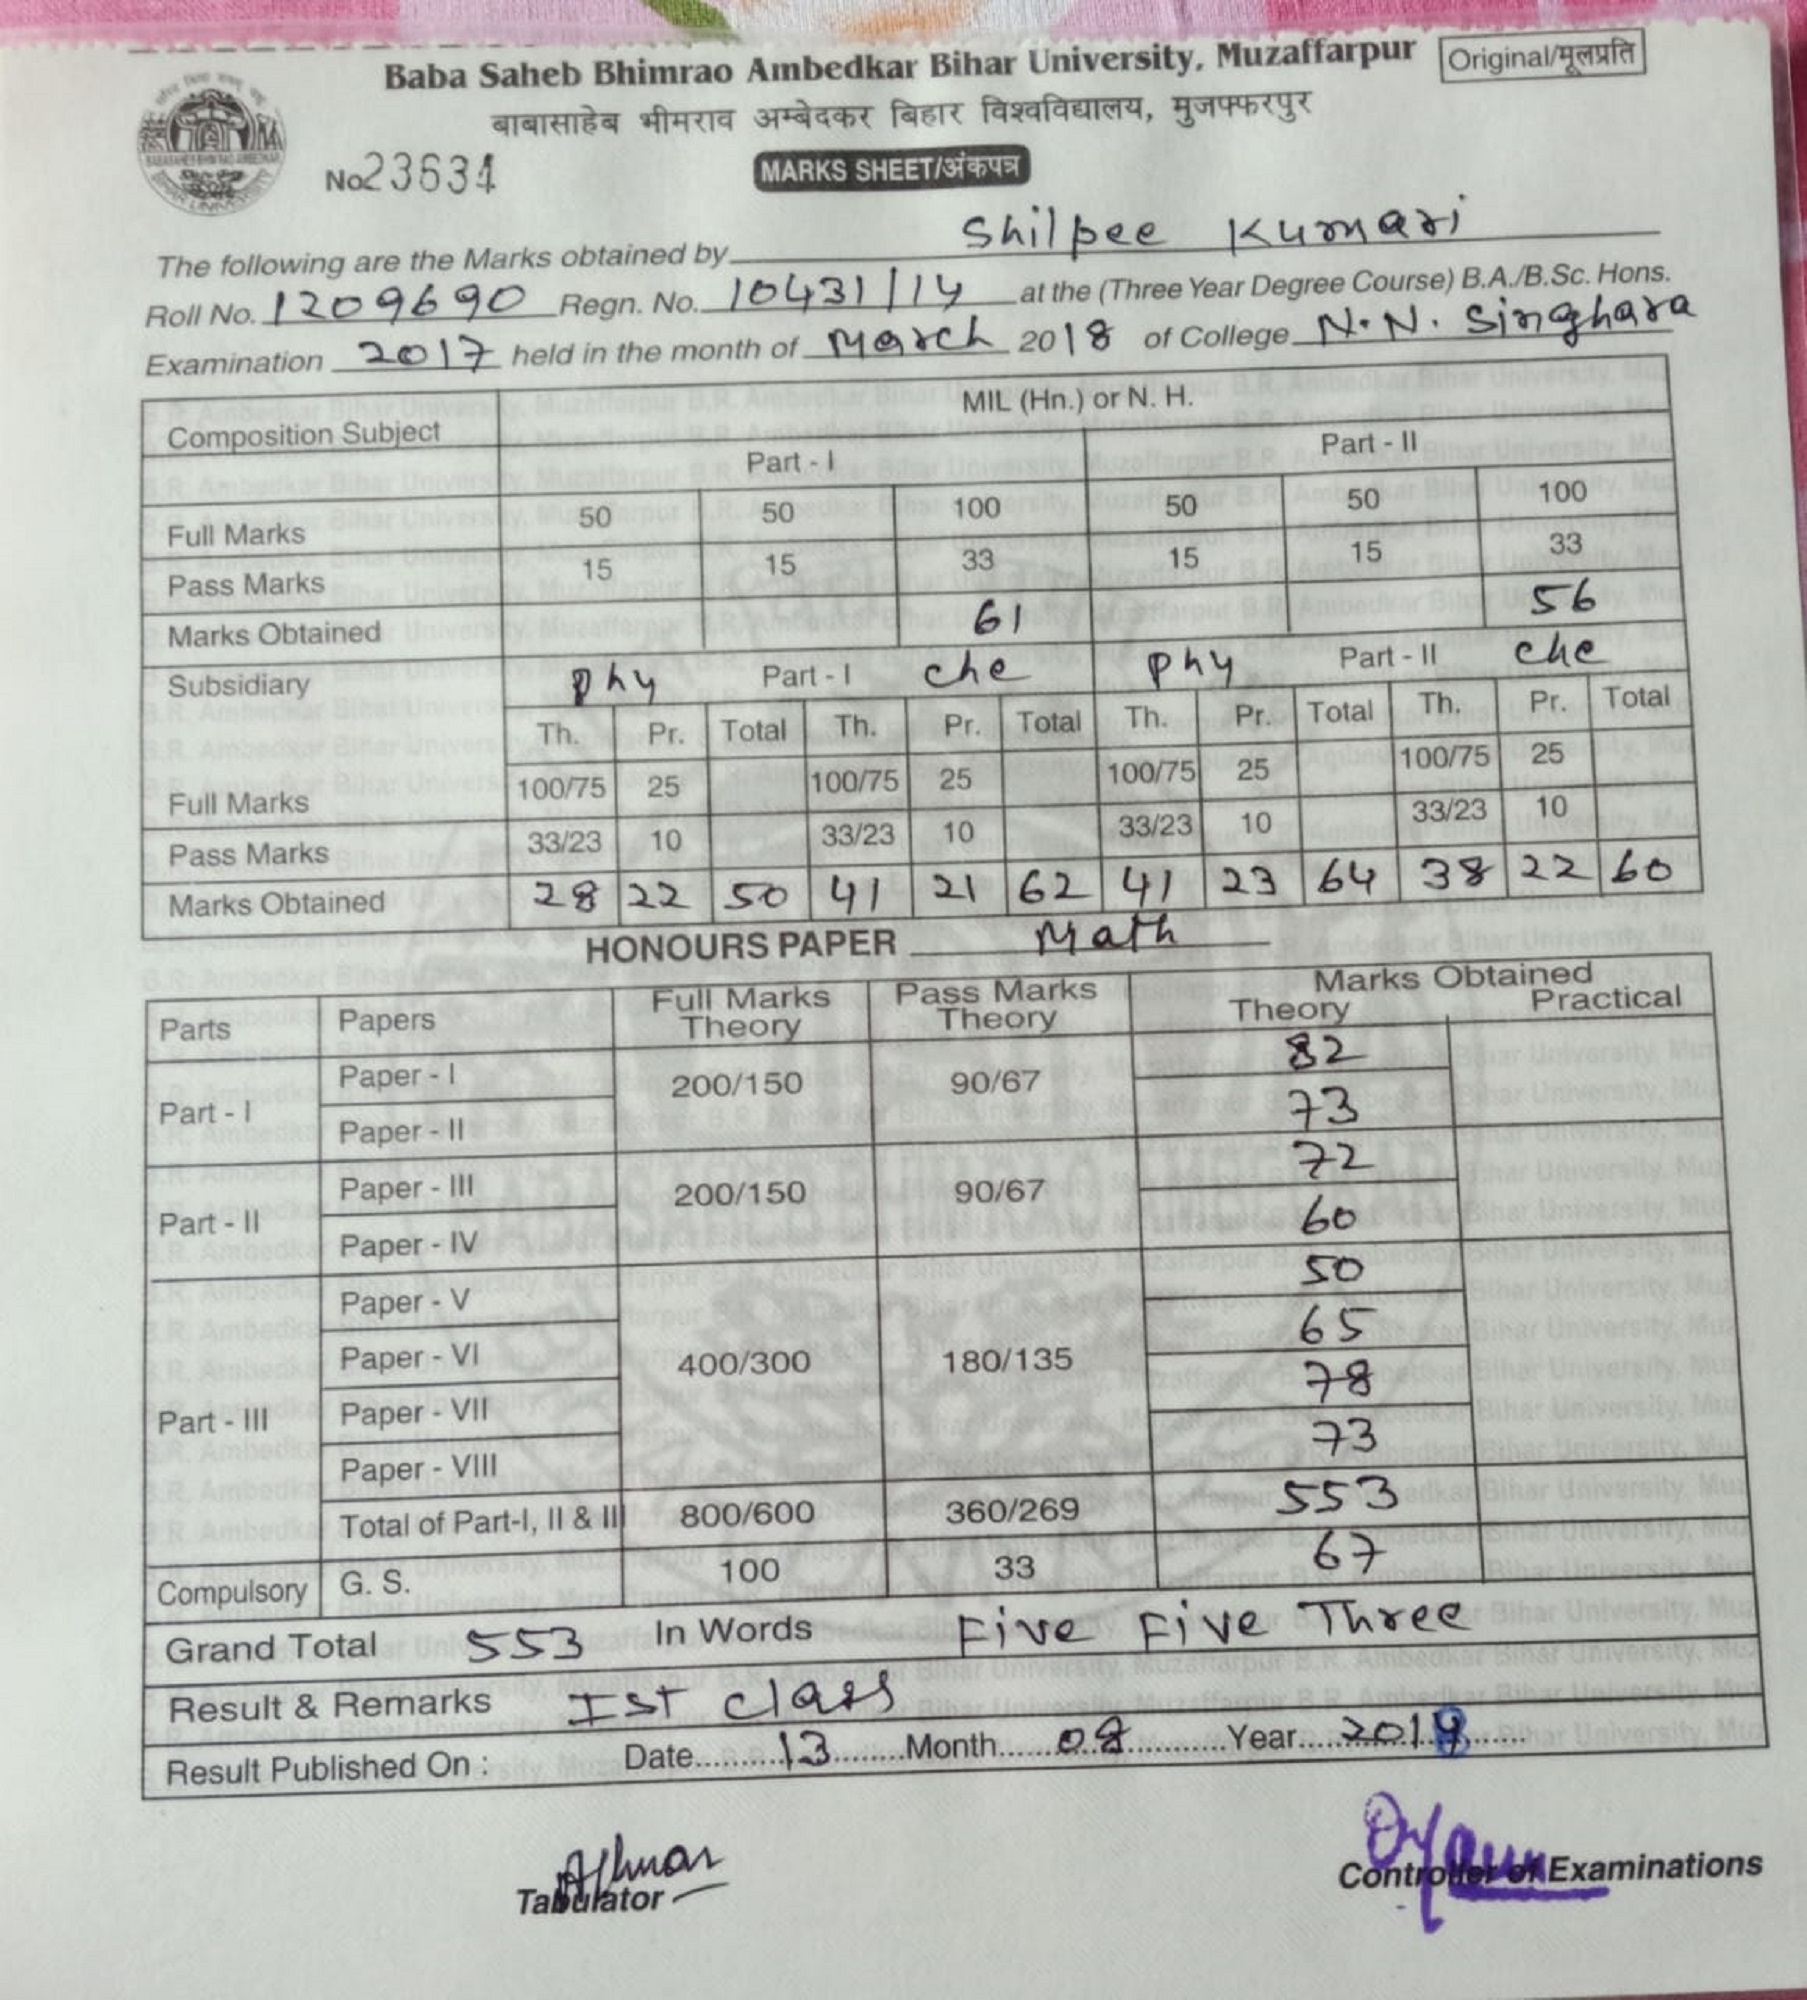 Baba Saheb Bhimrao Ambedkar Bihar University, Muzaffarpur Original/मूलप्रति
बाबासाहेब भीमराव अम्बेदकर बिहार विश्वविद्यालय, मुजफ्फरपुर
No. 23634 MARKS SHEET/अंकपत्र
The following are the Marks obtained by Shilpee Kumari
Roll No. 1209690 Regn. No. 10431/14 at the (Three Year Degree Course) B.A./B.Sc. Hons.
Examination 2017 held in the month of March 2018 of College N.N. Singhara
Composition Subject MIL (Hn.) or N. H.
Part - I Part - II
Full Marks 50 50 100 50 50 100
Pass Marks 15 15 33 15 15 33
Marks Obtained 61 56
Subsidiary Phy Part - I Che Phy Part - II Che
Th. Pr. Total Th. Pr. Total Th. Pr. Total Th. Pr. Total
Full Marks 100/75 25 100/75 25 100/75 25 100/75 25
Pass Marks 33/23 10 33/23 10 33/23 10 33/23 10
Marks Obtained 28 22 50 41 21 62 41 23 64 38 22 60
HONOURS PAPER Math
Parts Papers Full Marks Theory Pass Marks Theory Marks Obtained Theory Practical
Part - I Paper - I 200/150 90/67 82
Paper - II 73
Part - II Paper - III 200/150 90/67 72
Paper - IV 60
Part - III Paper - V 400/300 180/135 50
Paper - VI 65
Paper - VII 78
Paper - VIII 73
Total of Part-I, II & III 800/600 360/269 553
Compulsory G. S. 100 33 67
Grand Total 553 In Words Five Five Three
Result & Remarks Ist Class
Result Published On : Date 13 Month 08 Year 201
Tabulator
Controller of Examinations